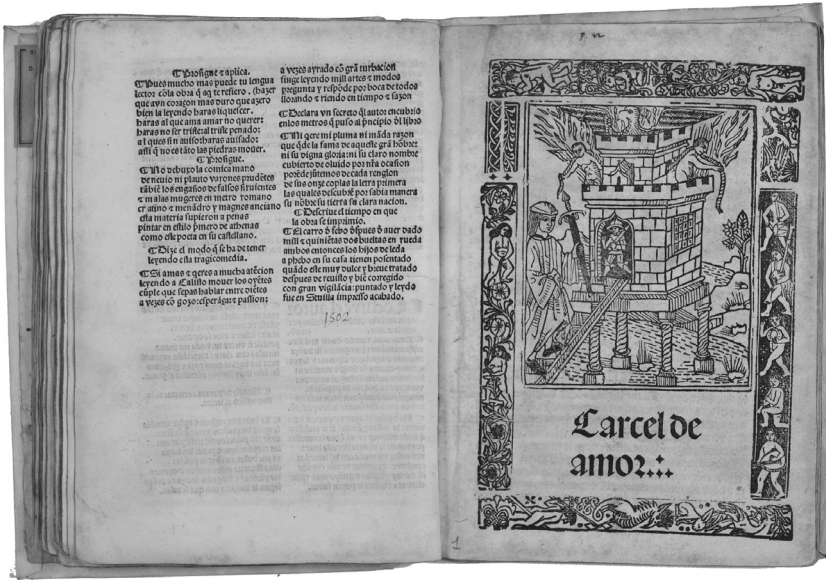 ¶Prosigue ⁊ aplica.
¶Pues mucho mas puede tu lengua
lector cõ la obra q̃ aq̃ te refiero. (hazer
que avn coraçon mas duro que azero
bien la leyendo haras liquescer.
haras al que ama amar no querer:
haras no ser triste al triste penado:
al ques sin auiso: haras auisado:
assi q̃ no es tãto las piedras mouer.
¶Prosigue.
¶No debuxo la comica mano
de neuio ni plauto varones prudẽtes
tãbiẽ los engaños de falsos siruientes
⁊ malas mugeres en metro romano
cratino ⁊ menãdro y magnes anciano
esta materia supieron a penas
pintar en estilo p̃mero de athenas
como este poeta en su castellano.
¶Dize el modo q̃ se ha de tener
leyendo esta tragicomedia.
¶Si amas ⁊ q̃eres a mucha atẽcion
leyendo a Calisto mouer los oyẽtes
cũple que sepas hablar entre diẽtes
a vezes cõ gozo: esperãça: ⁊ passion:
a vezes ayrado cõ grã turbacion
finge leyendo mill artes ⁊ modos
pregunta y respõde por boca de todos
llorando ⁊ riendo en tiempo ⁊ sazon
¶Declara vn secreto q̃l autor encubrio
en los metros q̃ puso al p̃ncipio d̃l libro
¶Ni q̃ere mi pluma ni mãda razon
que q̃de la fama de aqueste grã hõbre:
ni su digna gloria: ni su claro nombre
cubierto de oluido por nr̃a ocasion
por ẽde jũtemos de cada renglon
de sus onze coplas la letra primera
las quales descubrẽ por sabia manera
su nõbre su tierra su clara nacion.
¶Descriue el tiempo en que
la obra se imprimio.
¶El carro d̃ febo d̃spues d̃ auer dado
mill ⁊ quiniẽtas dos bueltas en rueda
ambos entonces los hijos de leda
a phebo en su casa tienen posentado
quãdo este muy dulce y breue tratado
despues de reuisto y biẽ corregido
con gran vigilãcia: puntado y leydo
fue en Seuilla impresso acabado.
1502
Carcel de
amor.:.
1